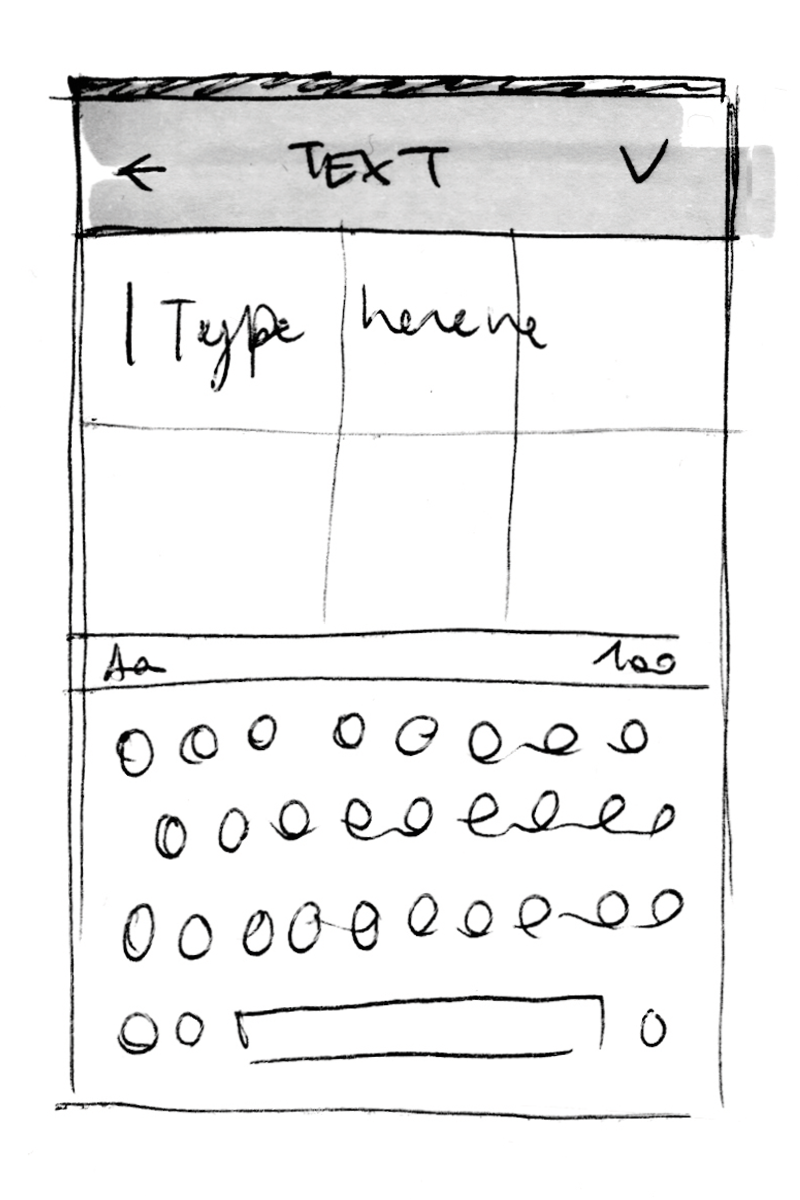 ← TEXT V
Type herere
Aa 100